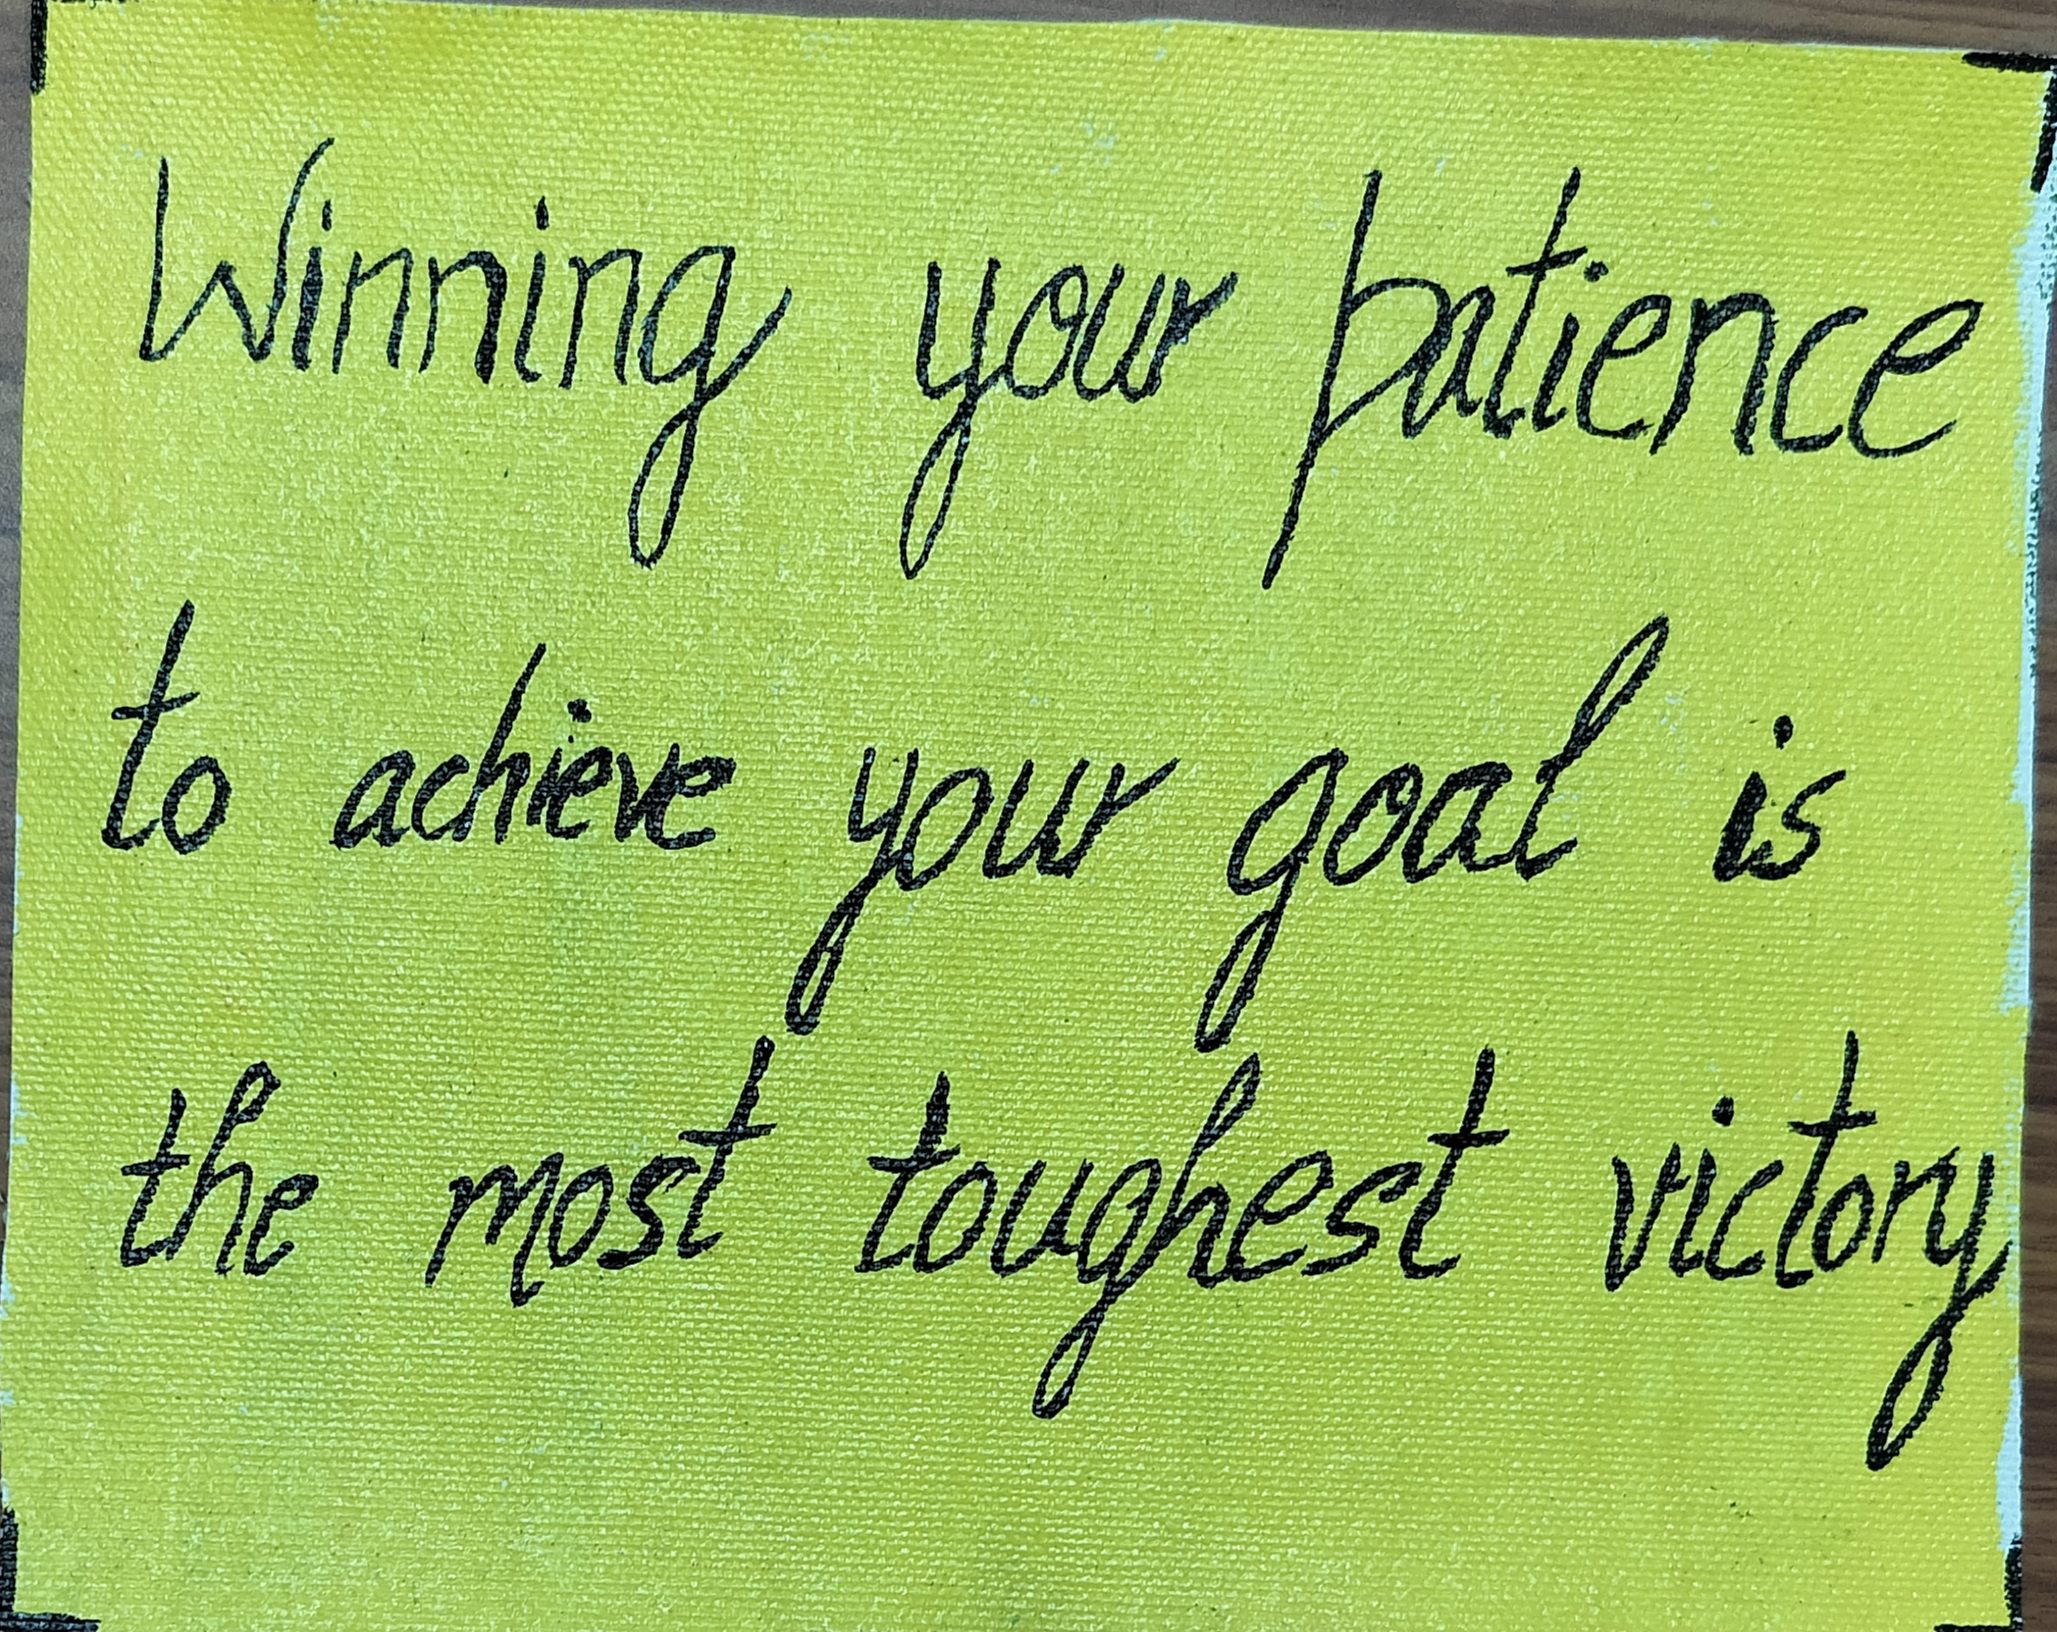 Winning your patience
to achieve your goal is
the most toughest victory